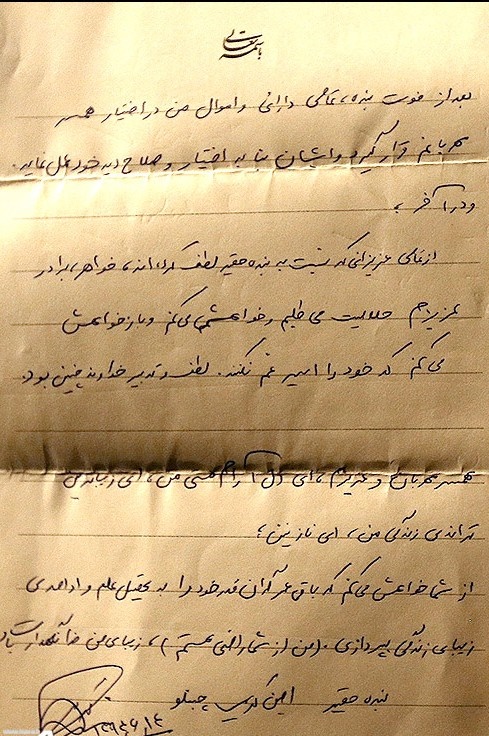 باسمه تعالی
بعد از فوت بنده، تمامی دارائی و اموال من در اختیار همسر
مهربانم قرار گیرد و ایشان بنا به اختیار و صلاح دید خود عمل نماید.
و در آخر؛
از تمامی عزیزانی که نسبت به بنده حقیر لطف کرده‌اند، خواهر، برادر
عزیزم حلالیت می طلبم و خداحافظی می‌کنم و باز خواهش
می کنم که خود را اسیر غم نکنند. لطف و تدبیر خداوند چنین بود.
همسر مهربان و عزیزم، ای دل آرام هستی من، ای زیباترین
ترانه‌ی زندگی من، ای نازنین؛
از شما خواهش می‌کنم که باقی عمر گران قدر خود را به تحصیل علم و ادامه‌ی
زیبای زندگی بپردازی. (من از شما راضی هستم)، زیبای من خدا نگهدارت باد
بنده حقیر امین کریمی چینلو